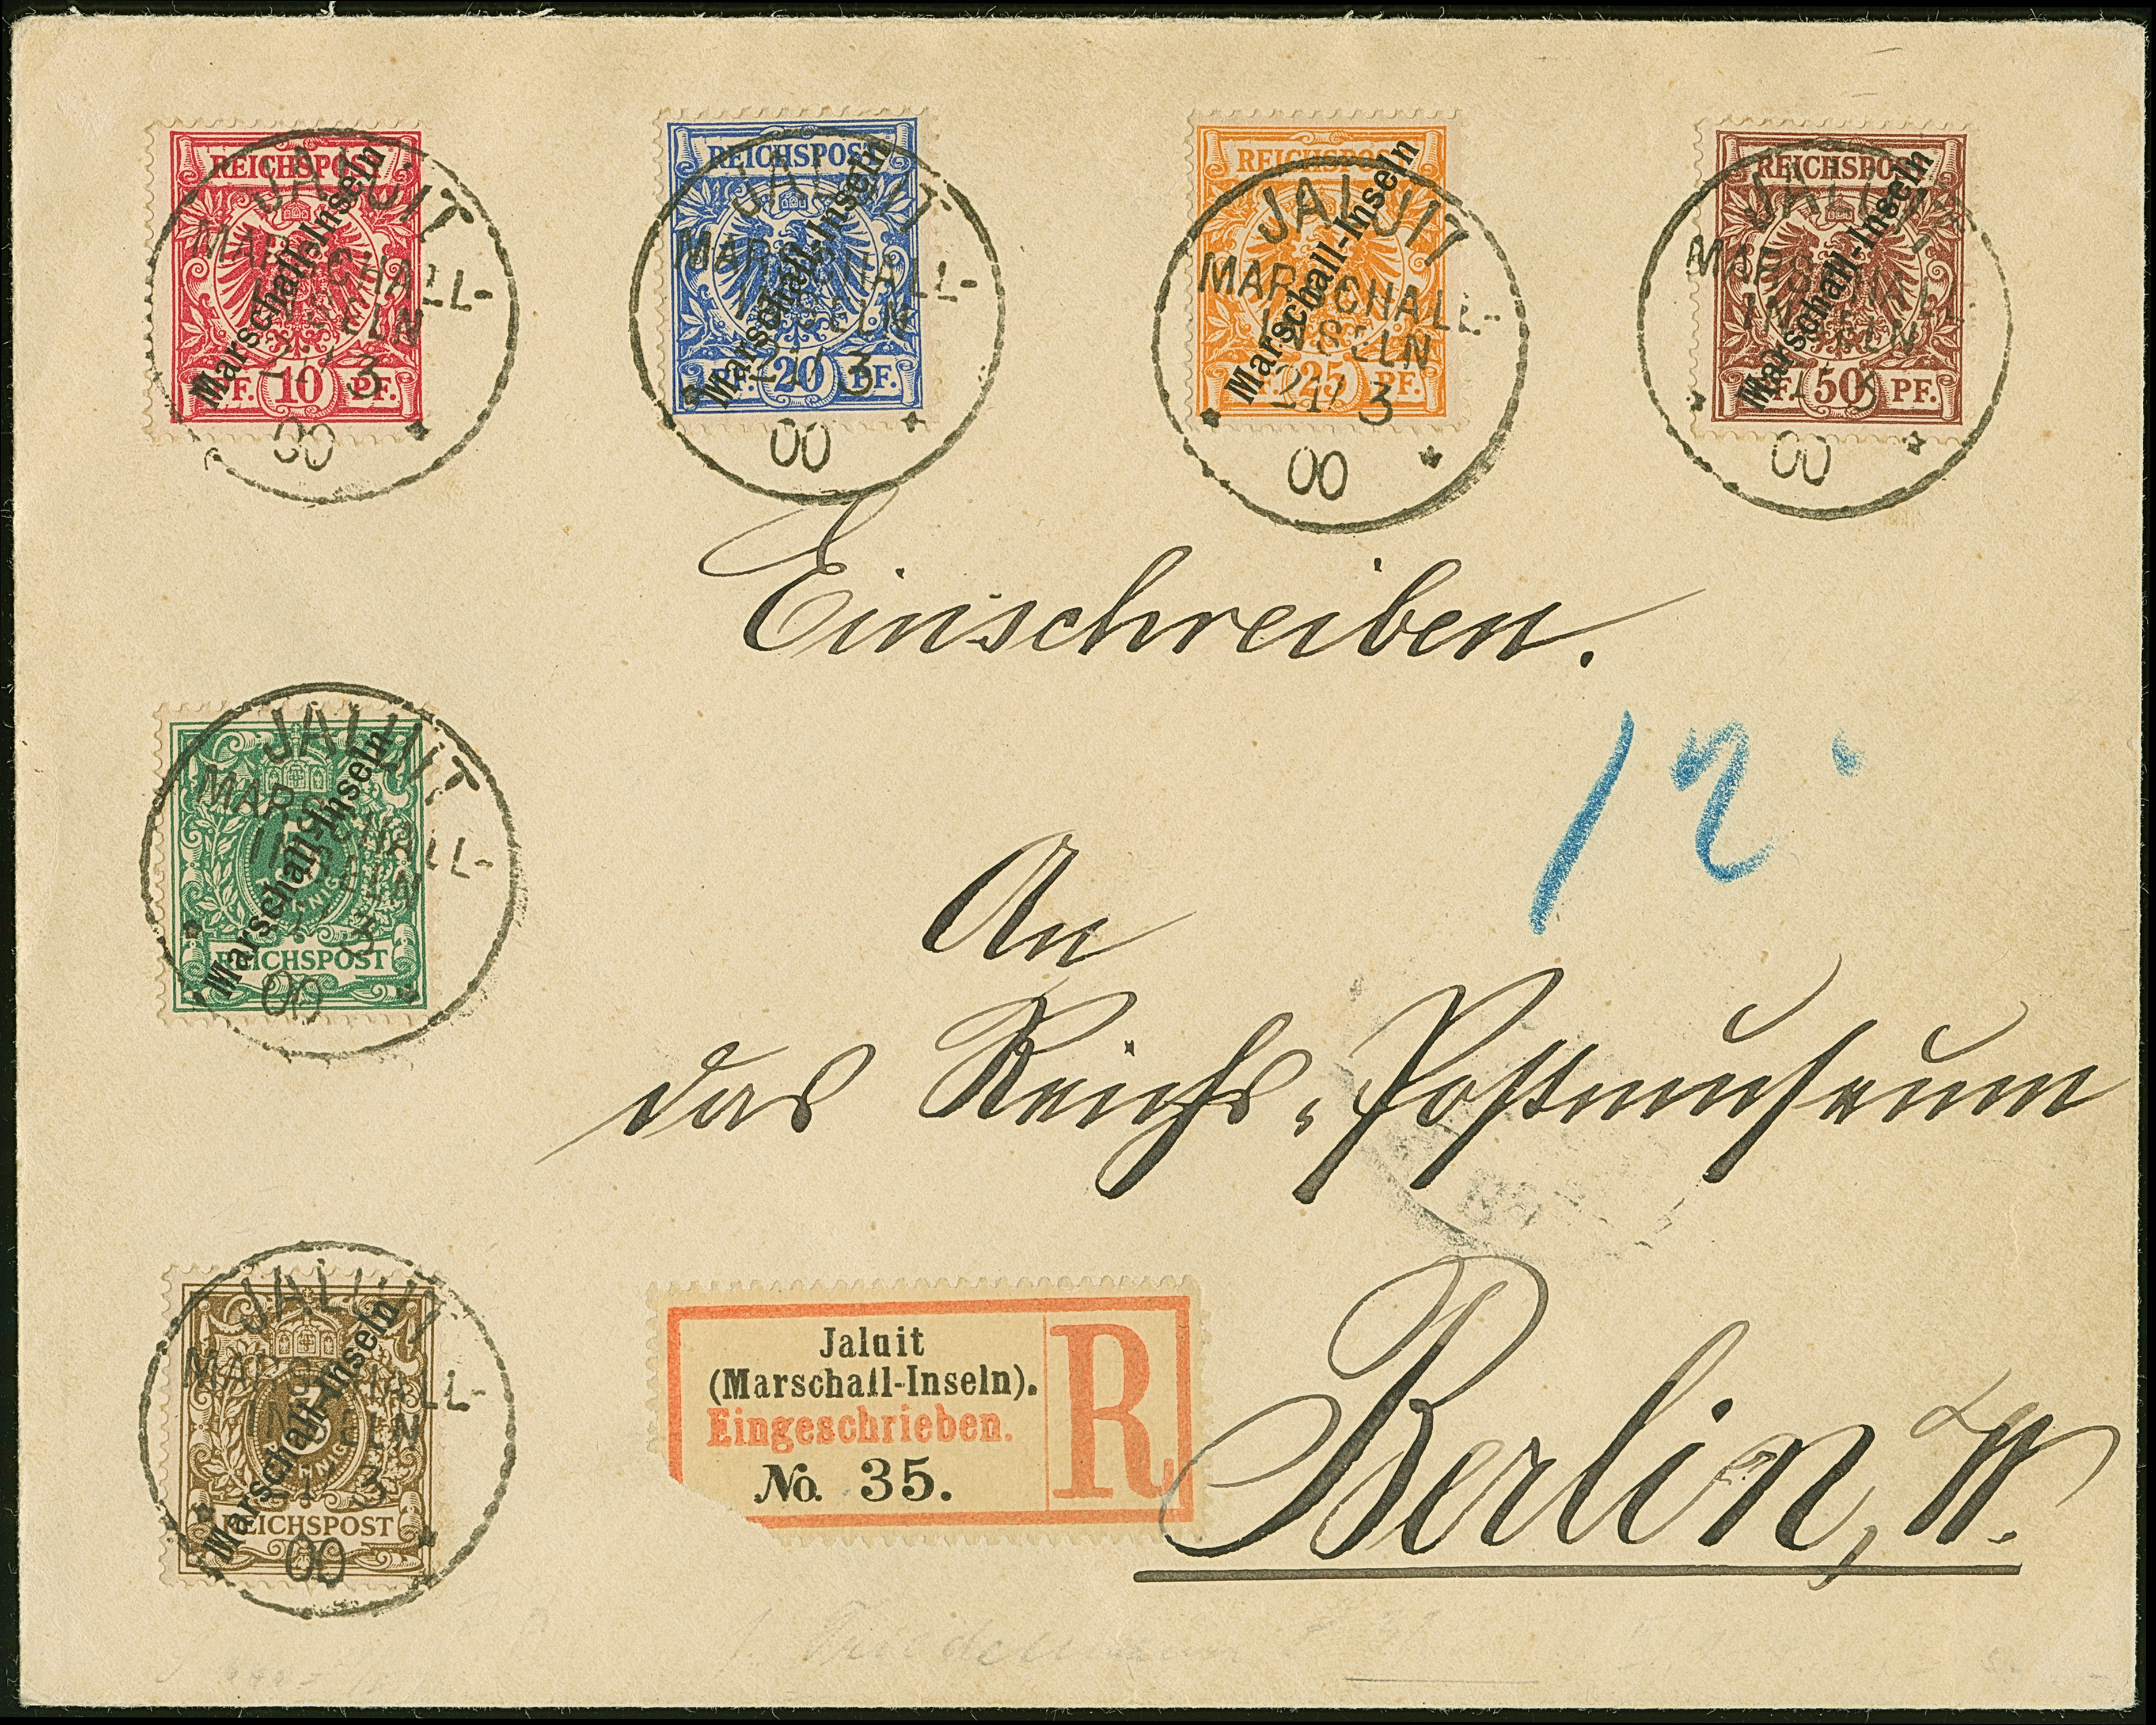 REICHSPOST
Marschall-Inseln
PF. 10 PF.
JALUIT
MARSCHALL-
INSELN
3
00
REICHSPOST
Marschall-Inseln
PF. 20 PF.
JALUIT
MARSCHALL-
INSELN
21/3
00
REICHSPOST
Marschall-Inseln
PF. 25 PF.
JALUIT
MARSCHALL-
INSELN
21/3
00
REICHSPOST
Marschall-Inseln
PF. 50 PF.
JALUIT
MARSCHALL-
INSELN
00
Einschreiben.
12
JALUIT
MARSCHALL-
INSELN
Marschall-Inseln
REICHSPOST
00
An
das Reichs-Postmuseum
JALUIT
MARSCHALL-
INSELN
Marschall-Inseln
3
REICHSPOST
00
Jaluit
(Marschall-Inseln).
Eingeschrieben.
No. 35.
R
Berlin, W.